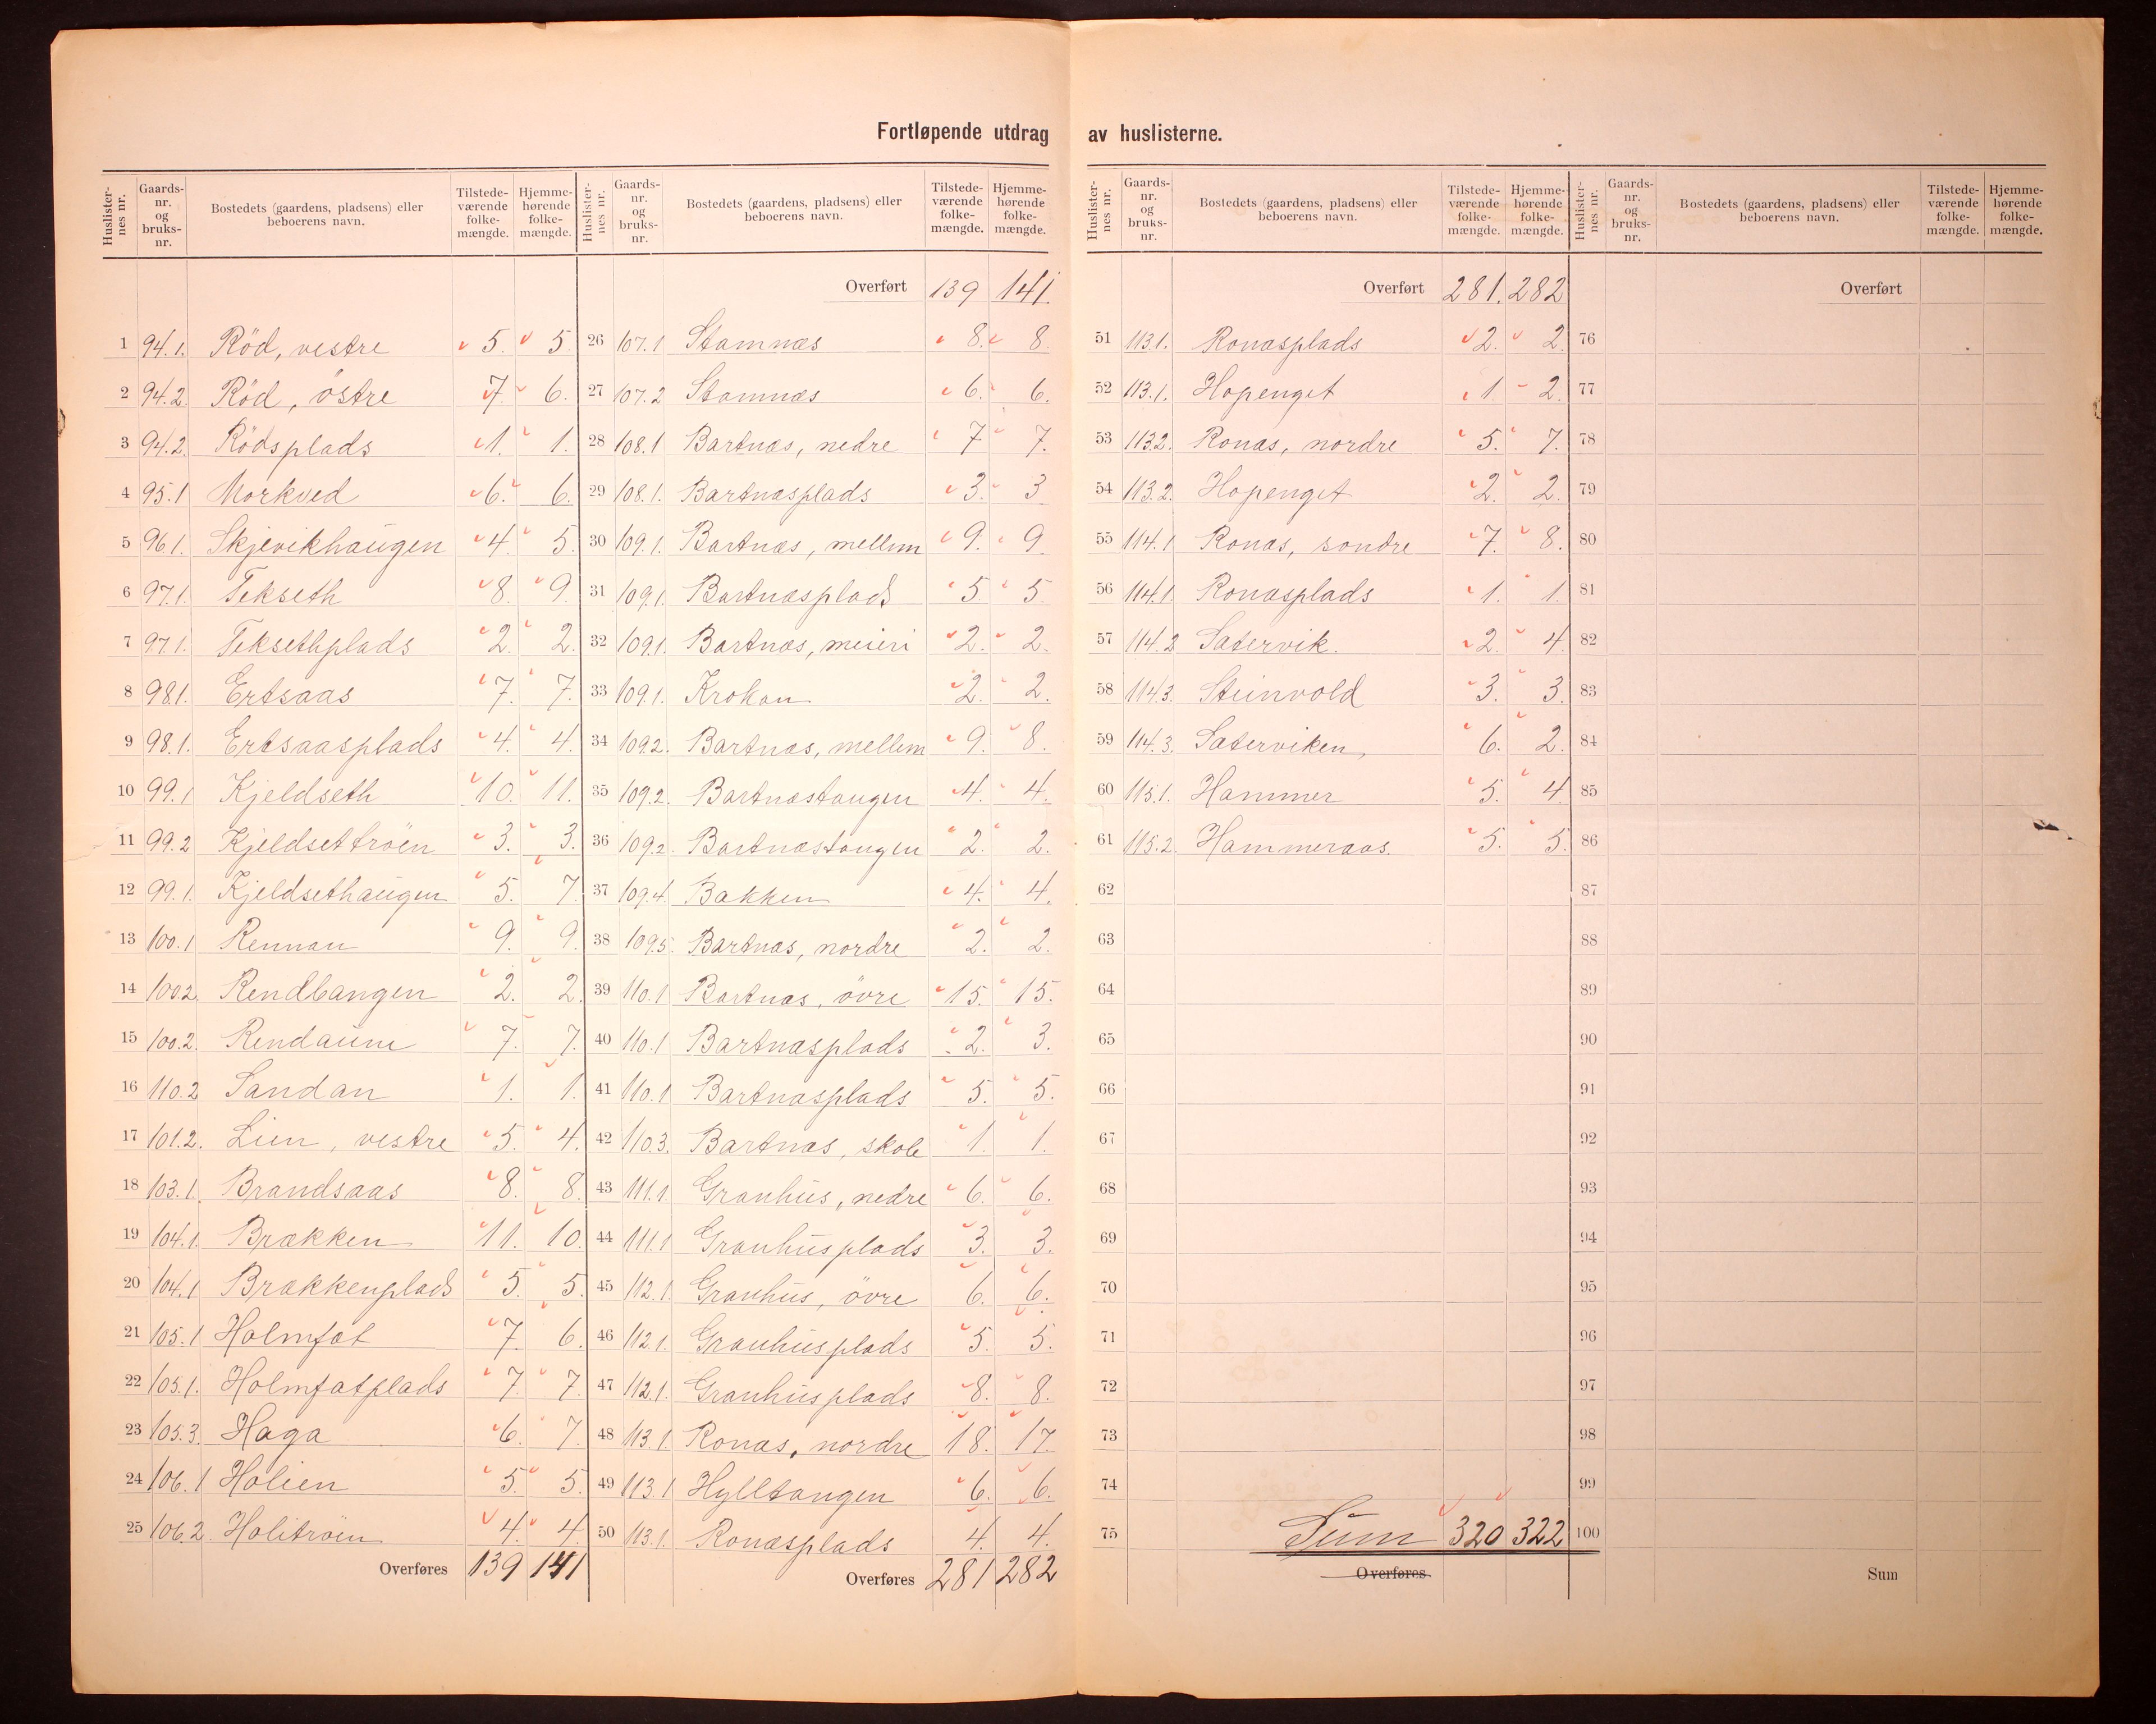 Fortløpende utdrag av huslisterne.
Huslisternes nr. Gaards-nr. og bruks-nr. Bostedets (gaardens, pladsens) eller beboerens navn. Tilstedeværende folkemængde. Hjemmehørende folkemængde.
1 94.1. Röd, vestre 5. 5.
2 94.2. Röd, östre 7. 6.
3 94.2. Rödsplads 1. 1.
4 95.1 Morkved 6. 6.
5 96.1. Skjevikhaugen 4. 5.
6 97.1. Tekseth 8. 9.
7 97.1. Teksethplads 2. 2.
8 98.1. Ertsaas 7. 7.
9 98.1. Ertsaasplads 4. 4.
10 99.1 Kjeldseth 10. 11.
11 99.2 Kjeldsettröen 3. 3.
12 99.1. Kjeldsethaugen 5. 7.
13 100.1 Rennan 9. 9.
14 100.2. Rendbangen 2. 2.
15 100.2. Rendaune 7. 7.
16 110.2 Sandan 1. 1.
17 101.2. Lien, vestre 5. 4.
18 103.1. Brandsaas 8. 8.
19 104.1. Brækken 11. 10.
20 104.1 Brækkenplads 5. 5.
21 105.1 Holmfat 7. 6.
22 105.1. Holmfatplads 7. 7.
23 105.3. Haga 6. 7.
24 106.1 Holien 5. 5.
25 106.2. Holitröen 4. 4.
Overføres 139 141
Huslisternes nr. Gaards-nr. og bruks-nr. Bostedets (gaardens, pladsens) eller beboerens navn. Tilstedeværende folkemængde. Hjemmehørende folkemængde.
Overført 139 141.
26 107.1 Stamnæs 8. 8.
27 107.2 Stamnæs 6. 6.
28 108.1 Bartnæs, nedre 7 7.
29 108.1. Bartnæsplads 3. 3
30 109.1. Bartnæs, mellem 9. 9.
31 109.1. Bartnæsplads 5 5.
32 109.1. Bartnæs, meieri 2. 2.
33 109.1. Krokan 2. 2.
34 109.2. Bartnæs, mellem 9. 8.
35 109.2. Bartnæstangen 4. 4.
36 109.2. Bartnæstangen 2. 2.
37 109.4. Bakken 4. 4.
38 109.5. Bartnæs, nordre 2. 2.
39 110.1 Bartnæs, övre 15. 15.
40 110.1 Bartnæsplads 2. 3.
41 110.1 Bartnæsplads 5. 5.
42 110.3. Bartnæs, skole 1. 1.
43 111.1 Granhus, nedre 6. 6.
44 111.1 Granhusplads 3. 3.
45 112.1. Granhus, övre 6. 6.
46 112.1. Granhusplads 5. 5.
47 112.1. Granhusplads 8. 8.
48 113.1. Ronæs, nordre 18. 17.
49 113.1 Hylltangen 6. 6.
50 113.1. Ronæsplads 4. 4.
Overføres 281 282
Huslisternes nr. Gaards-nr. og bruks-nr. Bostedets (gaardens, pladsens) eller beboerens navn. Tilstedeværende folkemængde. Hjemmehørende folkemængde.
Overført 281. 282
51 113.1. Ronæsplads 2. 2.
52 113.1. Hopenget 1 2.
53 113.2. Ronæs, nordre 5. 7.
54 113.2. Hopenget 2. 2.
55 114.1 Ronæs, söndre 7. 8.
56 114.1. Ronæsplads 1. 1.
57 114.2 Sætervik. 2. 4.
58 114.3. Steinvold 3. 3.
59 114.3. Sæterviken, 6. 2.
60 115.1. Hammer 5. 4.
61 115.2. Hammeraas. 5. 5.
62
63
64
65
66
67
68
69
70
71
72
73
74
75 Sum 320 322
Overføres
Huslisternes nr. Gaards-nr. og bruks-nr. Bostedets (gaardens, pladsens) eller beboerens navn. Tilstedeværende folkemængde. Hjemmehørende folkemængde.
Overført
76
77
78
79
80
81
82
83
84
85
86
87
88
89
90
91
92
93
94
95
96
97
98
99
100
Sum